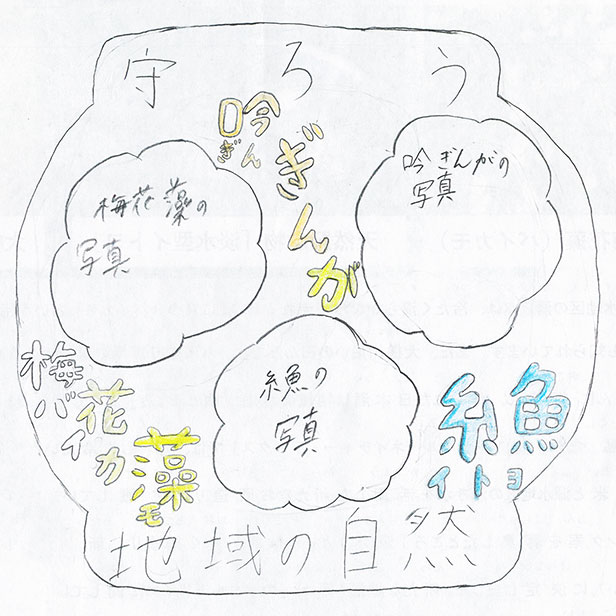 守ろう
吟ぎんが
ぎん
梅花藻の
写真
吟ぎんがの
写真
糸魚の
写真
梅花藻
バイカモ
糸魚
イトヨ
地域の自然